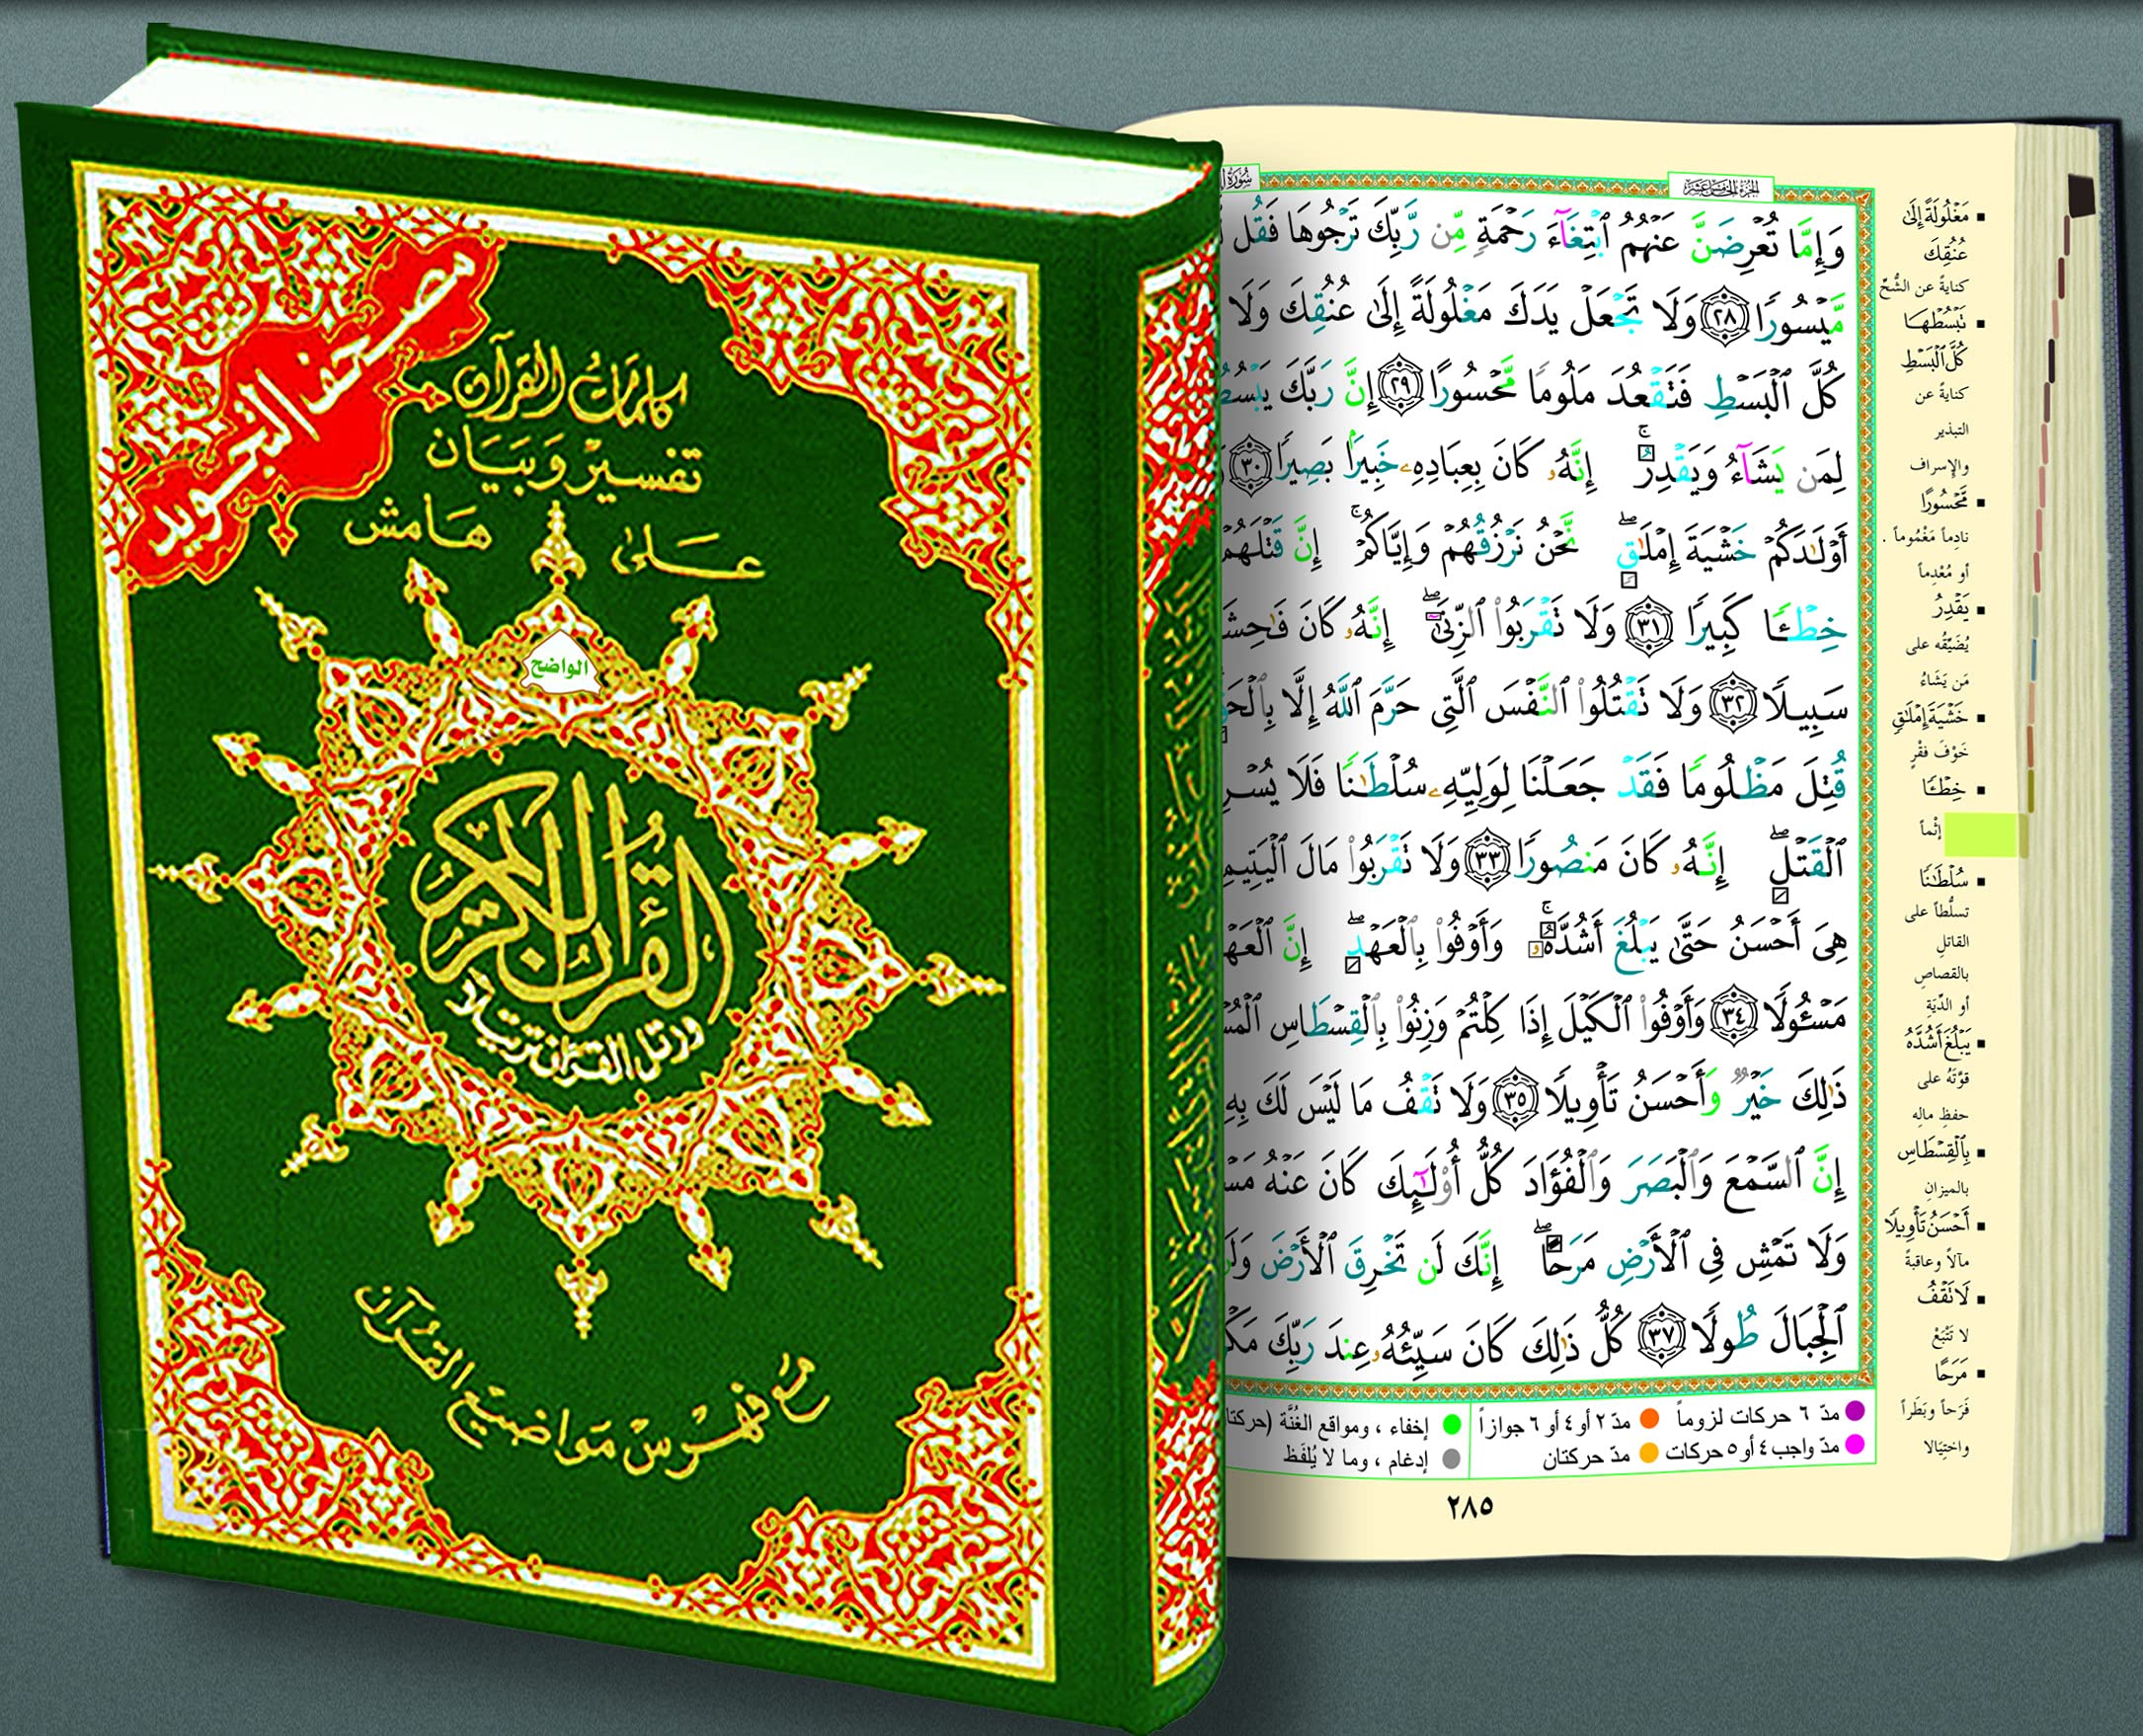 مصحف التجويد
كلمات القرآن
تفسير وبيان
على هامش
الواضح
القرآن الكريم
ورتل القرآن ترتيلا
مع فهرس مواضيع القرآن
سُورَةُ
الجزء الخامس عشر
وَإِمَّا تُعْرِضَنَّ عَنْهُمُ ٱبْتِغَآءَ رَحْمَةٍ مِّن رَّبِّكَ تَرْجُوهَا فَقُل
مَّيْسُورًا ٢٨ وَلَا تَجْعَلْ يَدَكَ مَغْلُولَةً إِلَىٰ عُنُقِكَ وَلَا
كُلَّ ٱلْبَسْطِ فَتَقْعُدَ مَلُومًا مَّحْسُورًا ٢٩ إِنَّ رَبَّكَ يَبْسُطُ
لِمَن يَشَآءُ وَيَقْدِرُ ۚ إِنَّهُۥ كَانَ بِعِبَادِهِۦ خَبِيرًۢا بَصِيرًا ٣٠
أَوْلَٰدَكُمْ خَشْيَةَ إِمْلَٰقٍ ۖ نَّحْنُ نَرْزُقُهُمْ وَإِيَّاكُمْ ۚ إِنَّ قَتْلَهُمْ
خِطْـًٔا كَبِيرًا ٣١ وَلَا تَقْرَبُوا۟ ٱلزِّنَىٰٓ ۖ إِنَّهُۥ كَانَ فَٰحِشَ
سَبِيلًا ٣٢ وَلَا تَقْتُلُوا۟ ٱلنَّفْسَ ٱلَّتِى حَرَّمَ ٱللَّهُ إِلَّا بِٱلْحَقِّ
قُتِلَ مَظْلُومًا فَقَدْ جَعَلْنَا لِوَلِيِّهِۦ سُلْطَٰنًا فَلَا يُسْرِ
ٱلْقَتْلِ ۖ إِنَّهُۥ كَانَ مَنصُورًا ٣٣ وَلَا تَقْرَبُوا۟ مَالَ ٱلْيَتِيمِ
هِىَ أَحْسَنُ حَتَّىٰ يَبْلُغَ أَشُدَّهُۥ ۚ وَأَوْفُوا۟ بِٱلْعَهْدِ ۖ إِنَّ ٱلْعَهْ
مَسْـُٔولًا ٣٤ وَأَوْفُوا۟ ٱلْكَيْلَ إِذَا كِلْتُمْ وَزِنُوا۟ بِٱلْقِسْطَاسِ ٱلْمُسْ
ذَٰلِكَ خَيْرٌ وَأَحْسَنُ تَأْوِيلًا ٣٥ وَلَا تَقْفُ مَا لَيْسَ لَكَ بِهِ
إِنَّ ٱلسَّمْعَ وَٱلْبَصَرَ وَٱلْفُؤَادَ كُلُّ أُو۟لَٰٓئِكَ كَانَ عَنْهُ مَسْ
وَلَا تَمْشِ فِى ٱلْأَرْضِ مَرَحًا ۖ إِنَّكَ لَن تَخْرِقَ ٱلْأَرْضَ وَلَن
ٱلْجِبَالَ طُولًا ٣٧ كُلُّ ذَٰلِكَ كَانَ سَيِّئُهُۥ عِندَ رَبِّكَ مَكْ
مدّ ٦ حركات لزوماً مدّ ٢ أو ٤ أو ٦ جوازاً إخفاء ، ومواقع الغُنَّة (حركتا
مدّ واجب ٤ أو ٥ حركات مدّ حركتان إدغام ، وما لا يُلفَظ
٢٨٥
مَغْلُولَةً إِلَىٰ
عُنُقِكَ
كنايةً عن الشُّحّ
تَبْسُطْهَا
كُلَّ ٱلْبَسْطِ
كنايةً عن
التبذير
والإسراف
مَّحْسُورًا
نادِماً مَغْمُوماً .
أو مُعْدِماً
يَقْدِرُ
يُضَيِّقُه على
مَن يَشَاءُ
خَشْيَةَ إِمْلَٰقٍ
خَوْفَ فَقْرٍ
خِطْـًٔا
إثْماً
سُلْطَٰنًا
تسلُّطاً على
القاتل
بالقصاص
أو الدِّيَةِ
يَبْلُغَ أَشُدَّهُ
قوّتَهُ على
حفظِ مالِه
بِٱلْقِسْطَاسِ
بالميزانِ
أَحْسَنُ تَأْوِيلًا
مآلاً وعاقبةً
لَا تَقْفُ
لا تَتْبَعْ
مَرَحًا
فَرَحاً وبَطَراً
واختِيَالا